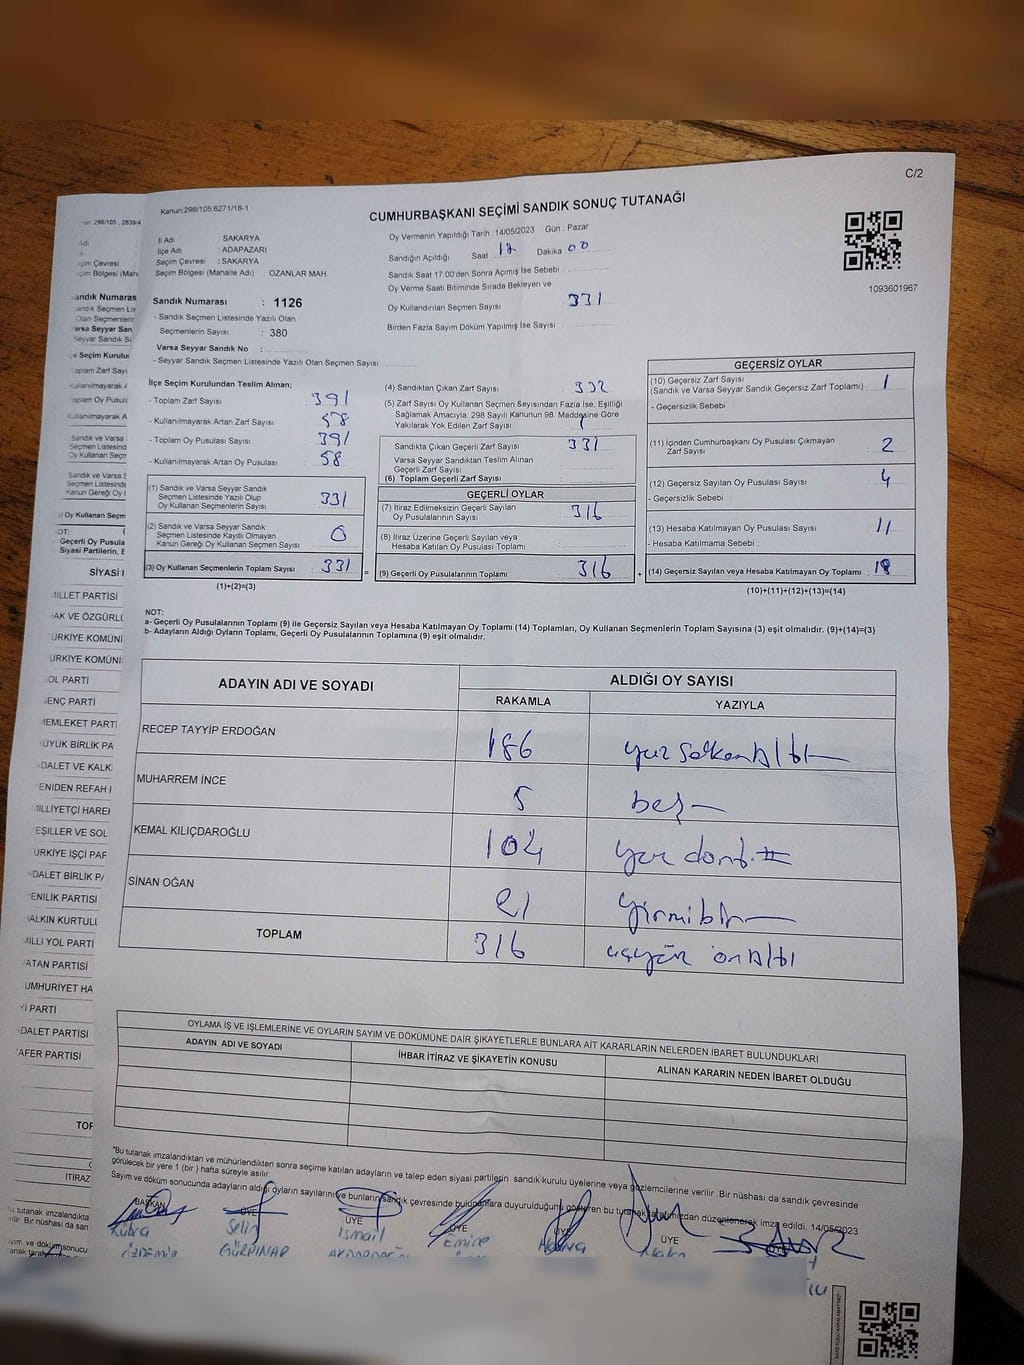 C/2
Kanun:298/105,6271/18-1
CUMHURBAŞKANI SEÇİMİ SANDIK SONUÇ TUTANAĞI
İl Adı : SAKARYA
İlçe Adı : ADAPAZARI
Seçim Çevresi : SAKARYA
Seçim Bölgesi (Mahalle Adı) OZANLAR MAH.
Sandık Numarası : 1126
- Sandık Seçmen Listesinde Yazılı Olan
Seçmenlerin Sayısı : 380
Varsa Seyyar Sandık No :
- Seyyar Sandık Seçmen Listesinde Yazılı Olan Seçmen Sayısı:
Oy Vermenin Yapıldığı Tarih :14/05/2023 Gün : Pazar
Sandığın Açıldığı Saat Dakika 00
Sandık Saat 17:00'den Sonra Açımış İse Sebebi :
Oy Verme Saati Bitiminde Sırada Bekleyen ve
Oy Kullandırılan Seçmen Sayısı : 331
Birden Fazla Sayım Döküm Yapılmış İse Sayısı :
1093601967
İlçe Seçim Kurulundan Teslim Alınan;
- Toplam Zarf Sayısı 391
- Kullanılmayarak Artan Zarf Sayısı
- Toplam Oy Pusulası Sayısı 391
- Kullanılmayarak Artan Oy Pusulası 58
(1) Sandık ve Varsa Seyyar Sandık
Seçmen Listesinde Yazılı Olup
Oy Kullanan Seçmenlerin Sayısı 331
(2) Sandık ve Varsa Seyyar Sandık
Seçmen Listesinde Kayıtlı Olmayan
Kanun Gereği Oy Kullanan Seçmen Sayısı 0
(3) Oy Kullanan Seçmenlerin Toplam Sayısı : 331
(1)+(2)=(3)
(4) Sandıktan Çıkan Zarf Sayısı : 332
(5) Zarf Sayısı Oy Kullanan Seçmen Sayısından Fazla İse, Eşitliği
Sağlamak Amacıyla, 298 Sayılı Kanunun 98. Maddesine Göre
Yakılarak Yok Edilen Zarf Sayısı : 1
Sandıkta Çıkan Geçerli Zarf Sayısı : 331
Varsa Seyyar Sandıktan Teslim Alınan
Geçerli Zarf Sayısı
(6) Toplam Geçerli Zarf Sayısı :
GEÇERLİ OYLAR
(7) İtiraz Edilmeksizin Geçerli Sayılan
Oy Pusulalarının Sayısı : 316
(8) İtiraz Üzerine Geçerli Sayılan veya
Hesaba Katılan Oy Pusulası Toplamı :
(9) Geçerli Oy Pusulalarının Toplamı : 316
GEÇERSİZ OYLAR
(10) Geçersiz Zarf Sayısı
(Sandık ve Varsa Seyyar Sandık Geçersiz Zarf Toplamı) : 1
- Geçersizlik Sebebi :
(11) İçinden Cumhurbaşkanı Oy Pusulası Çıkmayan
Zarf Sayısı : 2
(12) Geçersiz Sayılan Oy Pusulası Sayısı : 4
- Geçersizlik Sebebi :
(13) Hesaba Katılmayan Oy Pusulası Sayısı : 11
- Hesaba Katılmama Sebebi :
(14) Geçersiz Sayılan veya Hesaba Katılmayan Oy Toplamı : 18
(10)+(11)+(12)+(13)=(14)
NOT:
a- Geçerli Oy Pusulalarının Toplamı (9) ile Geçersiz Sayılan veya Hesaba Katılmayan Oy Toplamı (14) Toplamları, Oy Kullanan Seçmenlerin Toplam Sayısına (3) eşit olmalıdır. (9)+(14)=(3)
b- Adayların Aldığı Oyların Toplamı, Geçerli Oy Pusulalarının Toplamına (9) eşit olmalıdır.
ADAYIN ADI VE SOYADI ALDIĞI OY SAYISI
RAKAMLA YAZIYLA
RECEP TAYYİP ERDOĞAN 186 yüz seksen Altı
MUHARREM İNCE 5 beş
KEMAL KILIÇDAROĞLU 104 yüz dört
SİNAN OĞAN 21 yirmibir
TOPLAM 316 üçyüz on Altı
OYLAMA İŞ VE İŞLEMLERİNE VE OYLARIN SAYIM VE DÖKÜMÜNE DAİR ŞİKAYETLERLE BUNLARA AİT KARARLARIN NELERDEN İBARET BULUNDUKLARI
ADAYIN ADI VE SOYADI İHBAR İTİRAZ VE ŞİKAYETİN KONUSU ALINAN KARARIN NEDEN İBARET OLDUĞU
*Bu tutanak imzalandıktan ve mühürlendikten sonra seçime katılan adayların ve talep eden siyasi partilerin sandık kurulu üyelerine veya gözlemcilerine verilir. Bir nüshası da sandık çevresinde
görülecek bir yere 1 (bir ) hafta süreyle asılır.
Sayım ve döküm sonucunda adayların aldığı oyların sayılarını ve bunların sandık çevresinde bulunanlara duyurulduğunu gösteren bu tutanak tarafımızdan düzenlenerek imza edildi. 14/05/2023
BAŞKAN ÜYE ÜYE ÜYE ÜYE
Kübra Selin İsmail Emine
ÖZDEMİR GÜRPINAR
298/105 , 2839/4
Sandık Numaras
Toplam Zarf Sayı
SİYASİ
MİLLET PARTİSİ
HAK VE ÖZGÜRLÜ
TÜRKİYE KOMÜN
TÜRKİYE KOMÜNİ
SOL PARTİ
GENÇ PARTİ
MEMLEKET PARTİ
BÜYÜK BİRLİK PA
ADALET VE KALK
YENİDEN REFAH
MİLLİYETÇİ HAREK
YEŞİLLER VE SOL
TÜRKİYE İŞÇİ PAR
ADALET BİRLİK PA
YENİLİK PARTİSİ
HALKIN KURTULU
MİLLİ YOL PARTİ
VATAN PARTİSİ
CUMHURİYET HA
İYİ PARTİ
ADALET PARTİSİ
ZAFER PARTİSİ
TOP
İTİRAZ